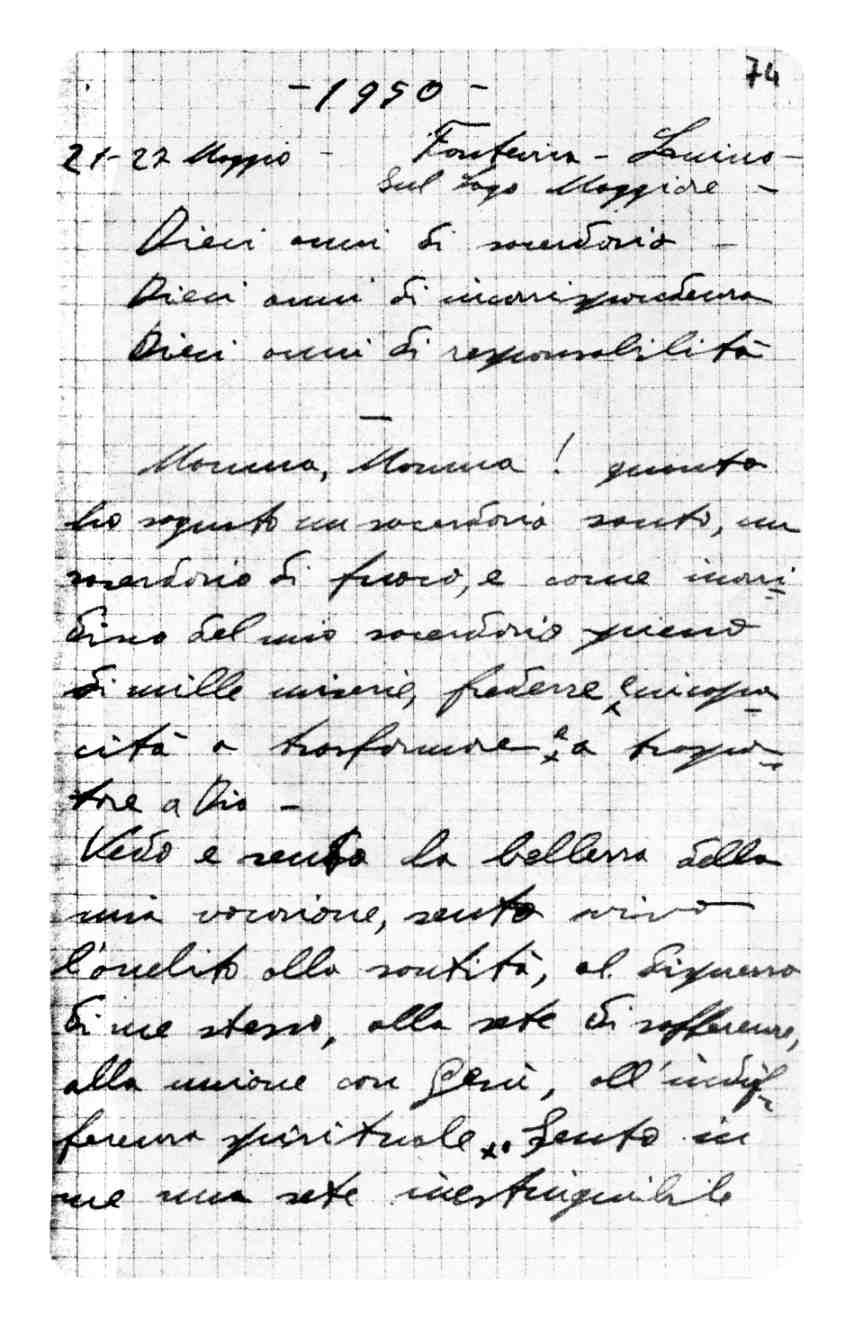 74
- 1950 -
21-22 Maggio - Fonteviva - Luino -
Sul Lago Maggiore -
Dieci anni di sacerdozio -
Dieci anni di incorrispondenza
Dieci anni di responsabilità
—
Mamma, Mamma! quanto
ho sognato un sacerdozio santo, un
sacerdozio di fuoco, e come inorri-
disco del mio sacerdozio pieno
di mille miserie, freddezze e incapa-
cità a trasformare e a trapian-
tare a Dio -
Vedo e sento la bellezza della
mia vocazione, sento vivo
l'anelito alla santità, al disprezzo
di me stesso, alla sete di sofferenze,
alla unione con Gesù, all'indif-
ferenza spirituale. Sento in
me una sete inestinguibile